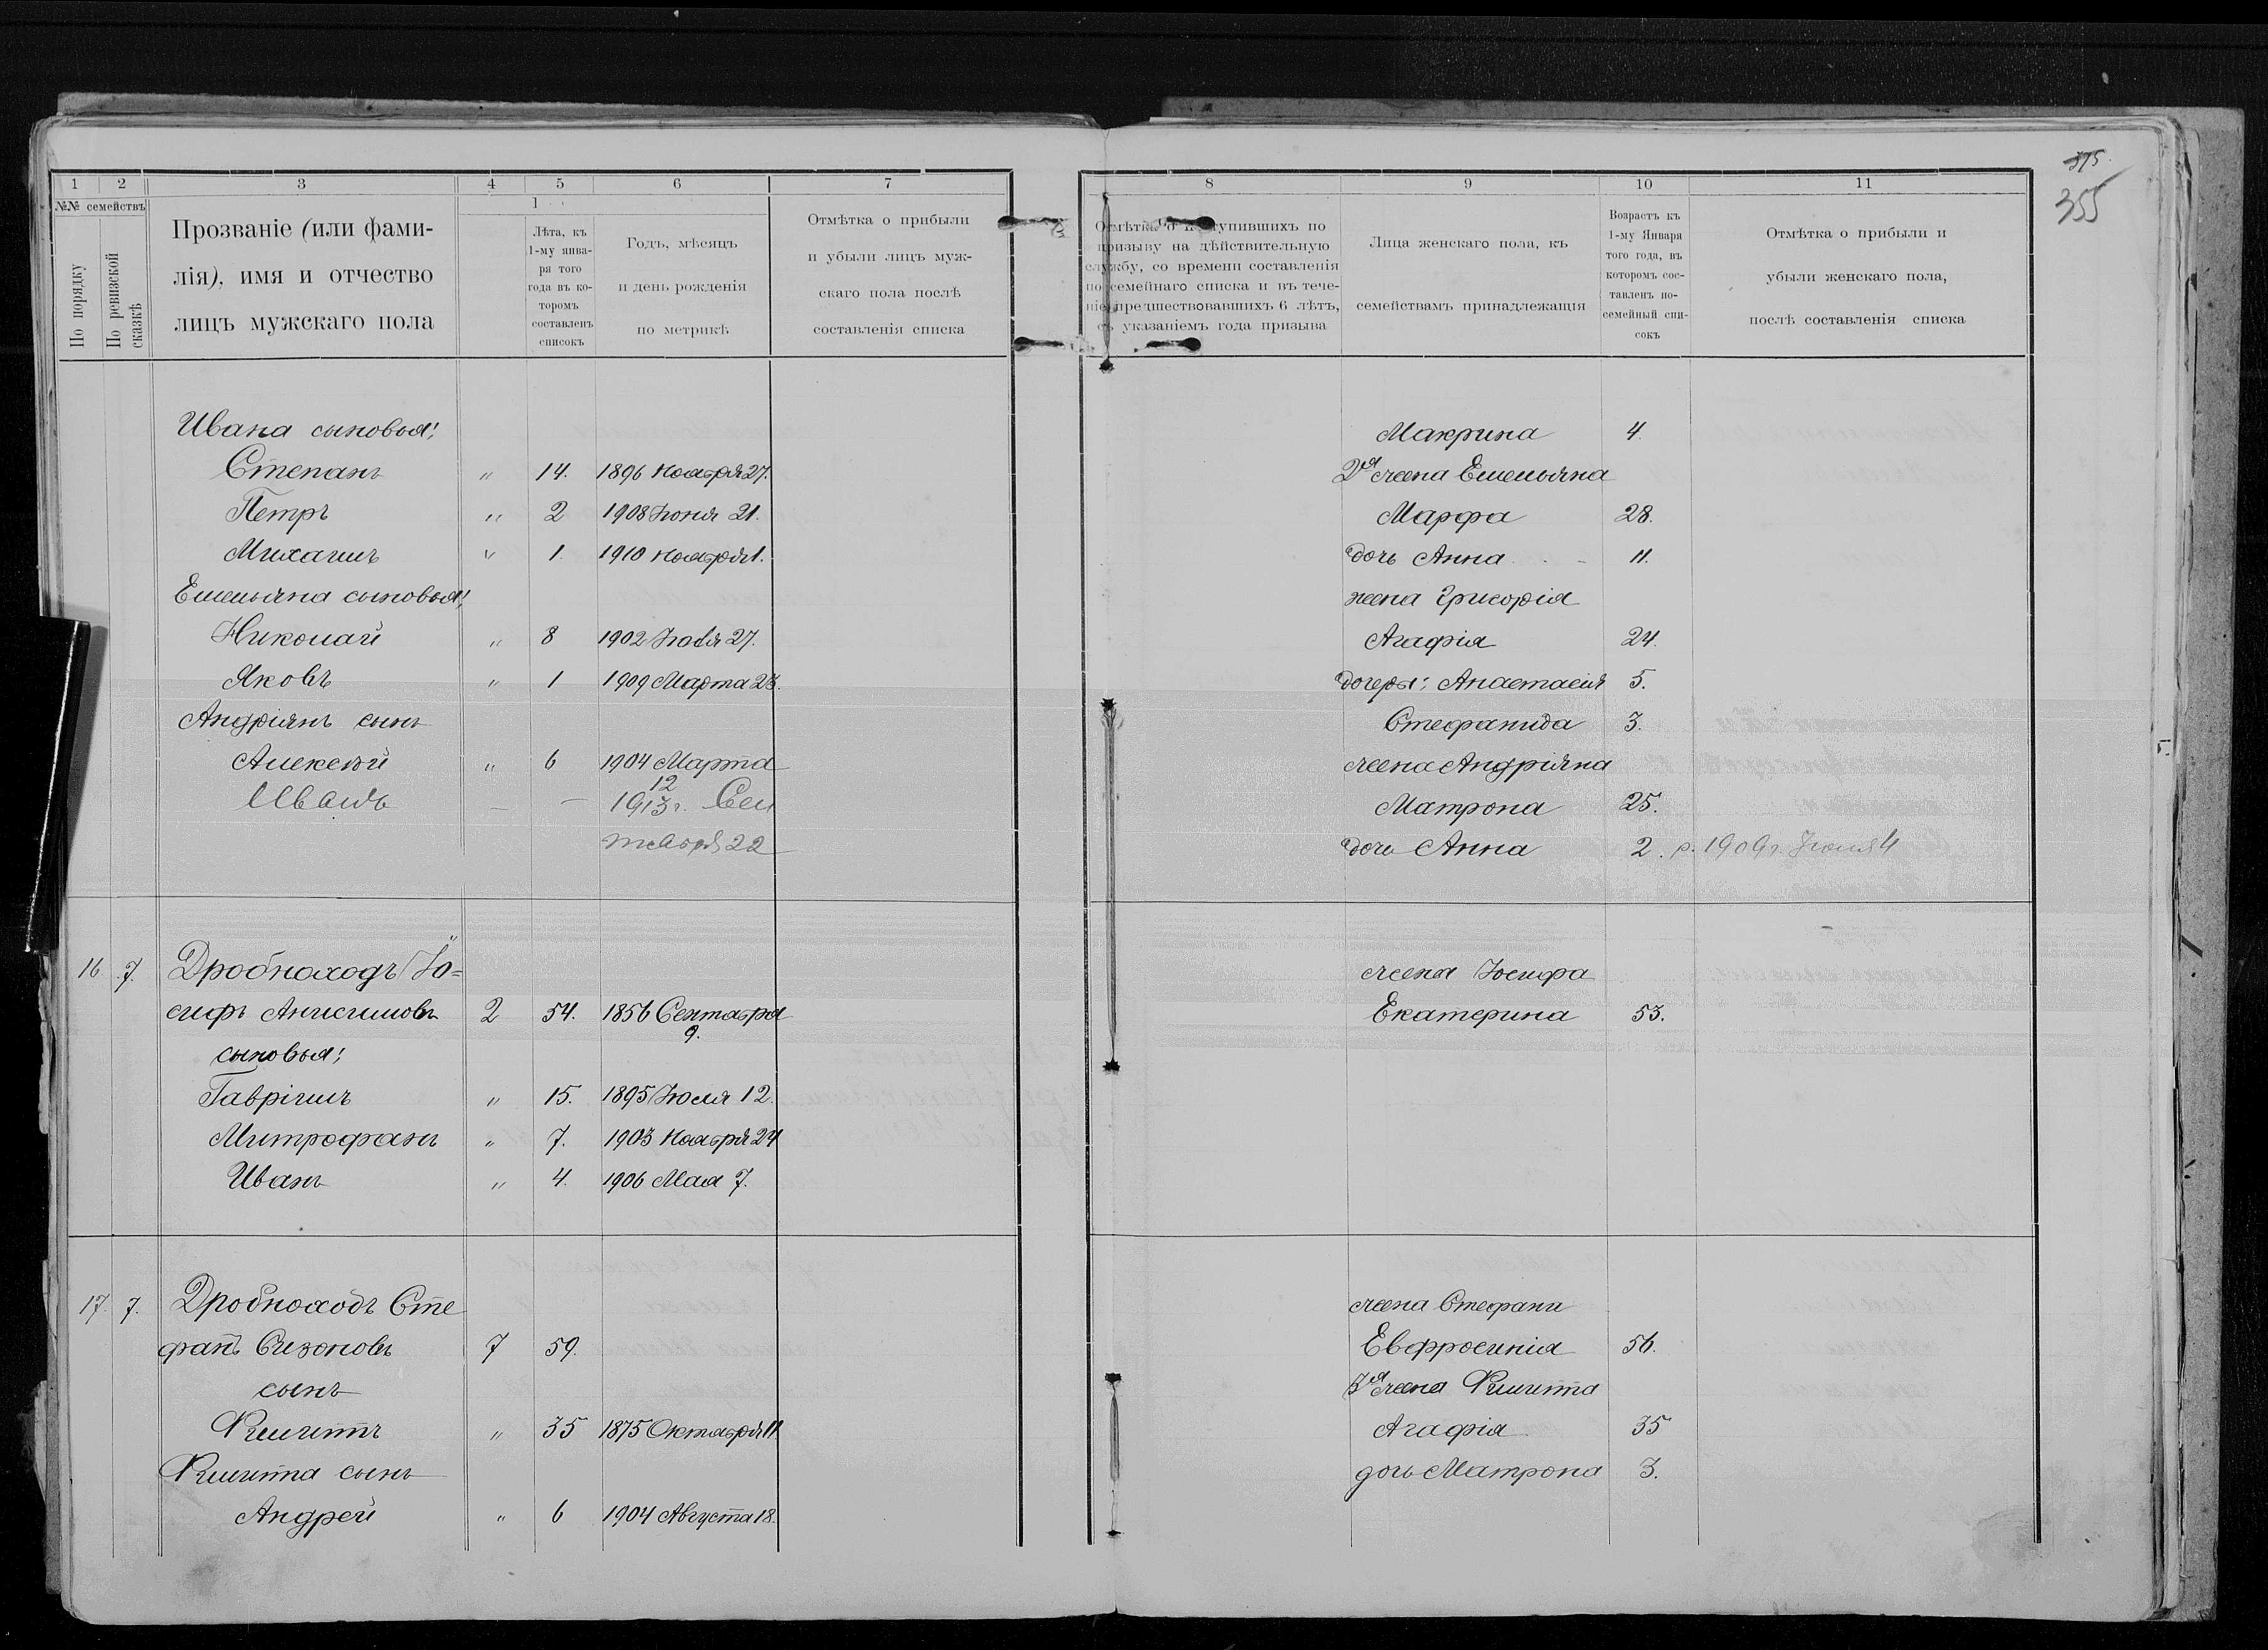 375.
355
1 2 3 4 5 6 7
№№ семействъ
По порядку
По ревизской сказкѣ
Прозваніе (или фами-
лія), имя и отчество
лицъ мужскаго пола
1
Лѣта, къ
1-му янва-
ря того
года въ ко-
торомъ
составленъ
списокъ
Годъ, мѣсяцъ
и день рожденія
по метрикѣ
Отмѣтка о прибыли
и убыли лицъ муж-
скаго пола послѣ
составленія списка
Ивана сыновья:
Степанъ " 14. 1896 Ноября 27.
Петръ " 2 1908 Іюня 21.
Михаилъ " 1. 1910 Ноября 1.
Емельяна сыновья:
Николай " 8 1902 27.
Яковъ " 1 1909 Марта 23.
Андріянъ сынъ
Алексѣй " 6 1904 Марта
12
Иванъ — — 1913 г. Сен
тября 22
16 7. Дробноходъ Іо=
сифъ Анисимовъ 2 54. 1856 Сентября
9.
сыновья:
Гавріилъ " 15. 1895 Іюля 12.
Митрофанъ " 7. 1903 Ноября 24
Иванъ " 4. 1906 Мая 7.
17. 7. Дробноходъ Сте
фанъ Сизоновъ 7 59.
сынъ
Филиппъ " 35 1875 Октября 11.
Филиппа сынъ
Андрей " 6 1904 Августа 18.
8 9 10 11
Отмѣтка о поступившихъ по
призыву на дѣйствительную
службу, со времени составленія
посемейнаго списка и въ тече-
ніе предшествовавшихъ 6 лѣтъ,
съ указаніемъ года призыва
Лица женскаго пола, къ
семействамъ принадлежащія
Возрастъ къ
1-му Января
того года, въ
которомъ сос-
тавленъ по-
семейный спи-
сокъ
Отмѣтка о прибыли и
убыли женскаго пола,
послѣ составленія списка
Макрина 4.
2я жена Емельяна
Марфа 28.
дочь Анна 11.
жена Григорія
Агафія 24.
дочери: Анастасія 5.
Стефанида 3.
жена Андріяна
Матрона 25.
дочь Анна 2. р. 1909 г. Іюня 4
жена Іосифа
Екатерина 53.
жена Стефани
Евфросинія 56.
3я жена Филиппа
Агафія 35
дочь Матрона 3.